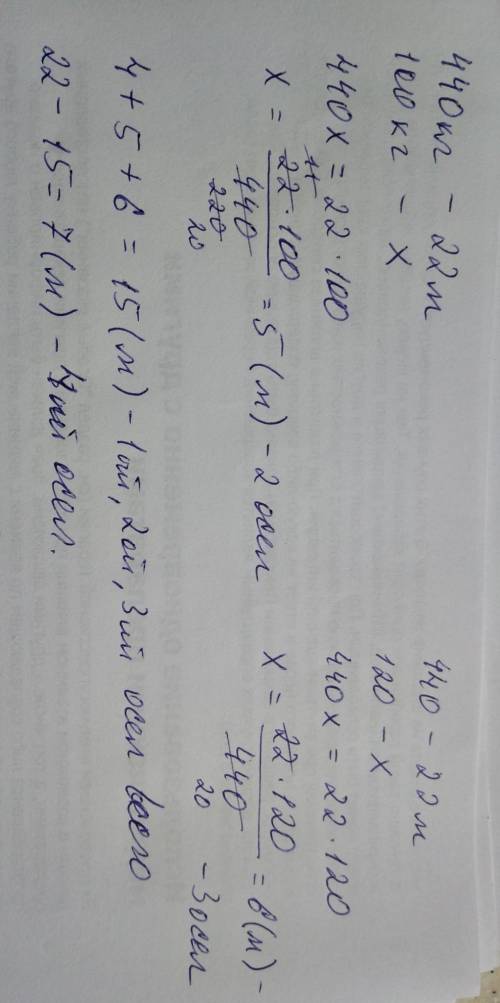 440кг - 22м
100кг - х
440х = 22 · 100
х = 22 · 100 / 440 = 5 (м) - 2 осел
11
220
20
440 - 22м
120 - х
440х = 22 · 120
х = 22 · 120 / 440 = 6 (м) -
20
- 3 осел
4 + 5 + 6 = 15 (м) - 1ый, 2ой, 3ий осел всего
22 - 15 = 7 (м) - 4ый осел.